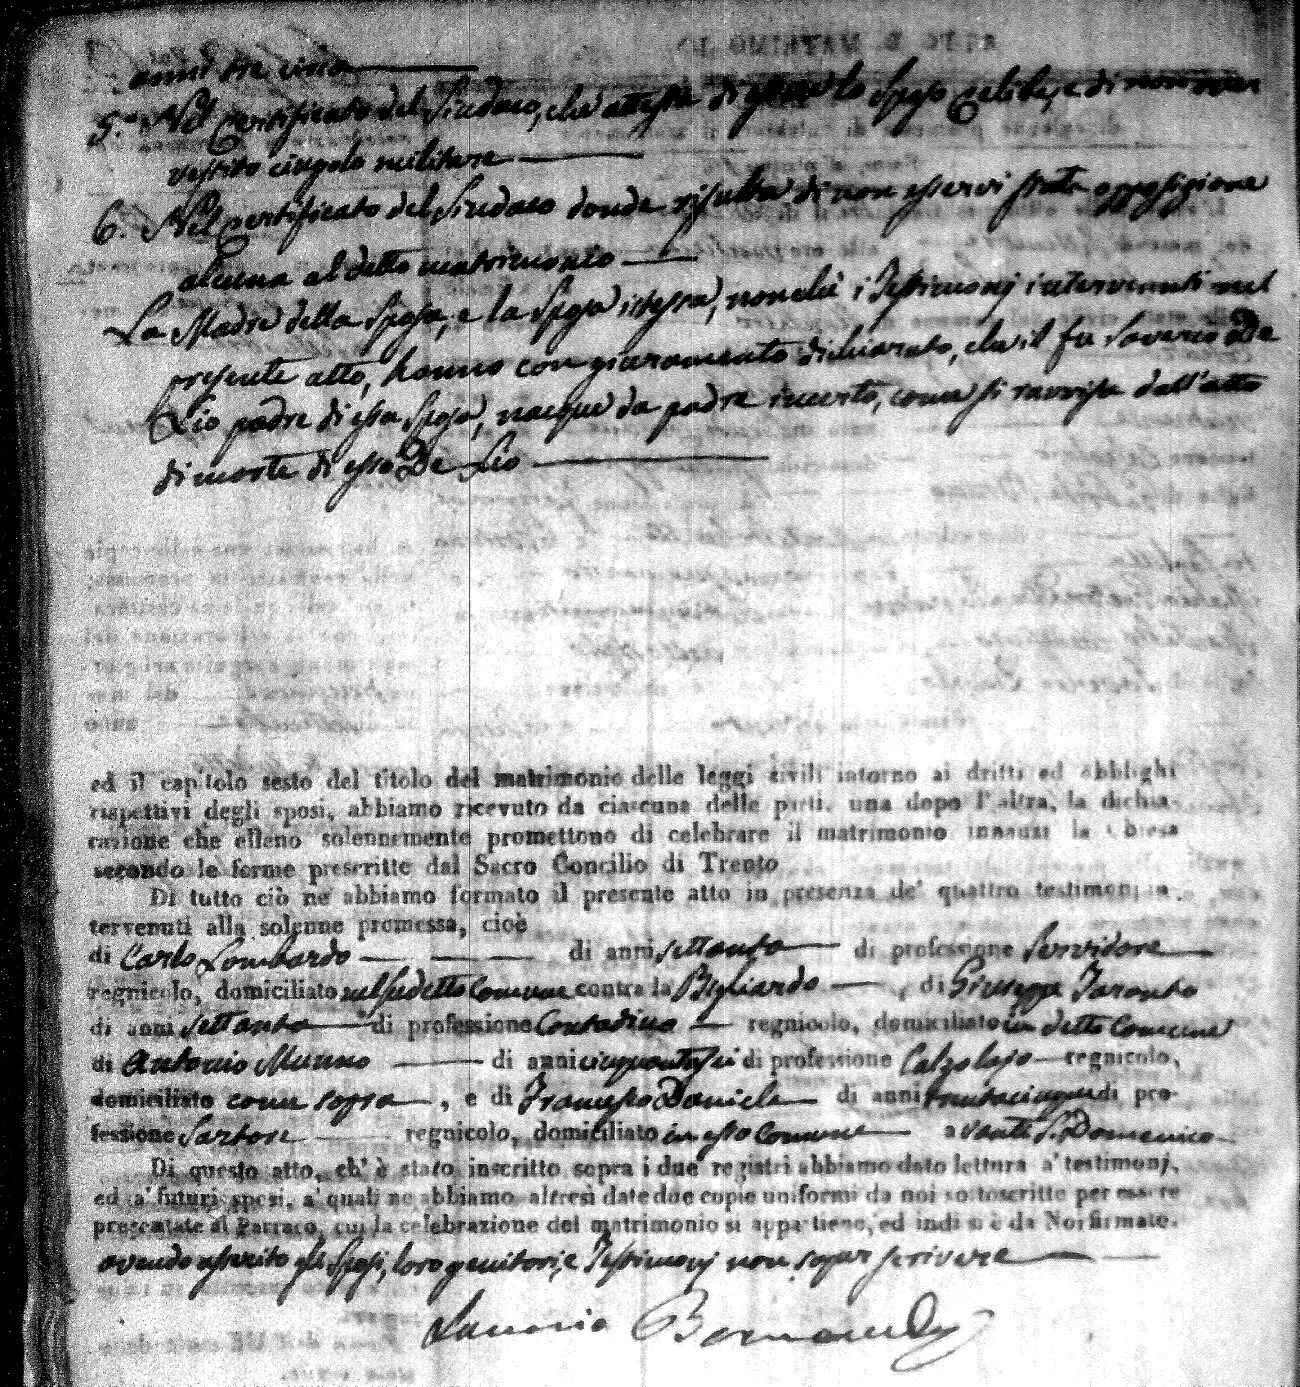 anni tre circa
5.° Nel certificato del Sindaco, che attesta di essere lo Sposo celibe, e di non aver
vestito cingolo militare
6. Nel certificato del Sindaco donde risulta di non esservi stata opposizione
alcuna al detto matrimonio
La Madre della Sposa, e la Sposa istessa, nonchè i Testimonj intervenuti nel
presente atto, hanno con giuramento dichiarato, che il fu Saverio De
Lio padre di essa Sposa, nacque da padre incerto, come si ravvisa dall'atto
di morte di esso De Lio
ed il capitolo sesto del titolo del matrimonio delle leggi civili intorno ai dritti ed obblighi
rispettivi degli sposi, abbiamo ricevuto da ciascuna delle parti, una dopo l'altra, la dichia-
razione che elleno solennemente promettono di celebrare il matrimonio innanzi la Chiesa
secondo le forme prescritte dal Sacro Concilio di Trento
Di tutto ciò ne abbiamo formato il presente atto in presenza de' quattro testimonj in
tervenuti alla solenne promessa, cioè
di Carlo Lombardo di anni settanta di professione Servidore
regnicolo, domiciliato nel sudetto Comune contra la Bigliardo, di Giuseppe Taranto
di anni settanta di professione Contadino regnicolo, domiciliato in detto Comune
di Antonio Munno di anni cinquantasei di professione Calzolajo regnicolo,
domiciliato come sopra, e di Francesco Daniele di anni trentacinque di pro-
fessione Sartore regnicolo, domiciliato in esso Comune avanti S. Domenico
Di questo atto, ch' è stato inscritto sopra i due registri abbiamo dato lettura a' testimonj,
ed a' futuri sposi, a' quali ne abbiamo altresì date due copie uniformi da noi sottoscritte per essere
presentate al Parroco, cui la celebrazione del matrimonio si appartiene, ed indi si è da Noi firmato.
avendo asserito gli Sposi, loro genitori, e Testimonj non saper scrivere